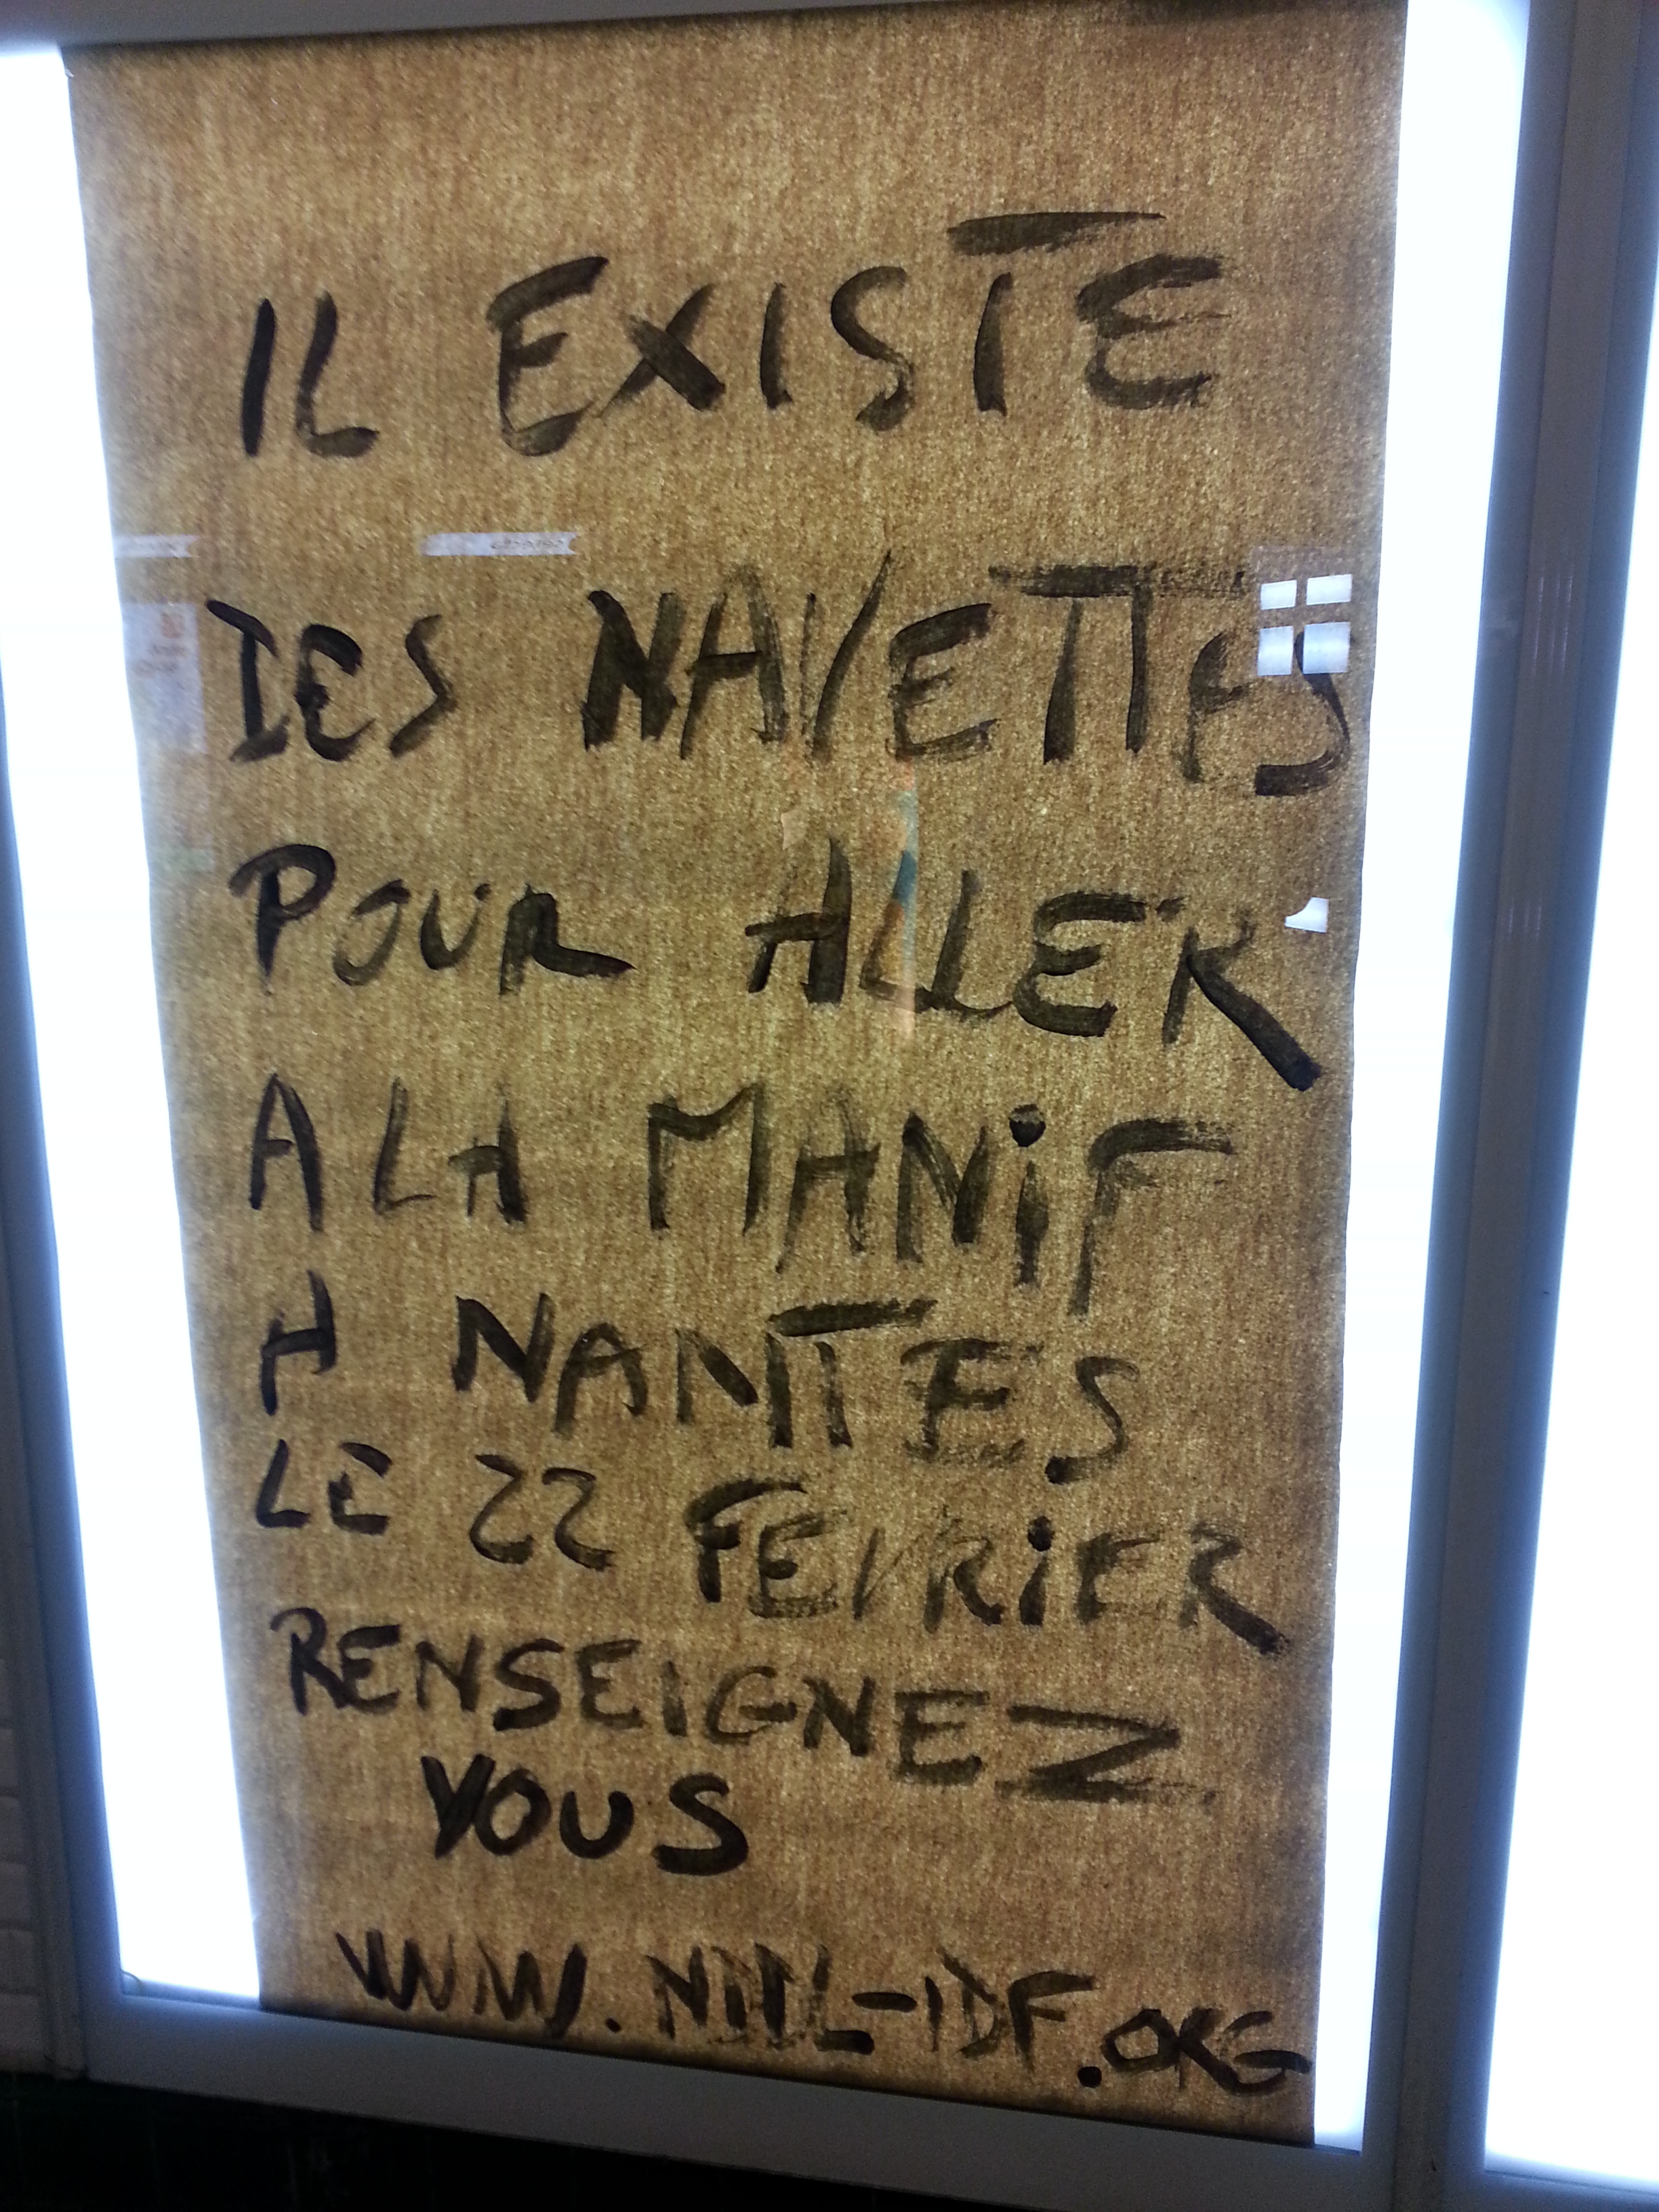 IL EXISTE
DES NAVETTES
POUR ALLER
A LA MANiF
A NANTES
LE 22 FEVRiER
RENSEIGNEZ
VOUS
WWW.NDDL-IDF.ORG